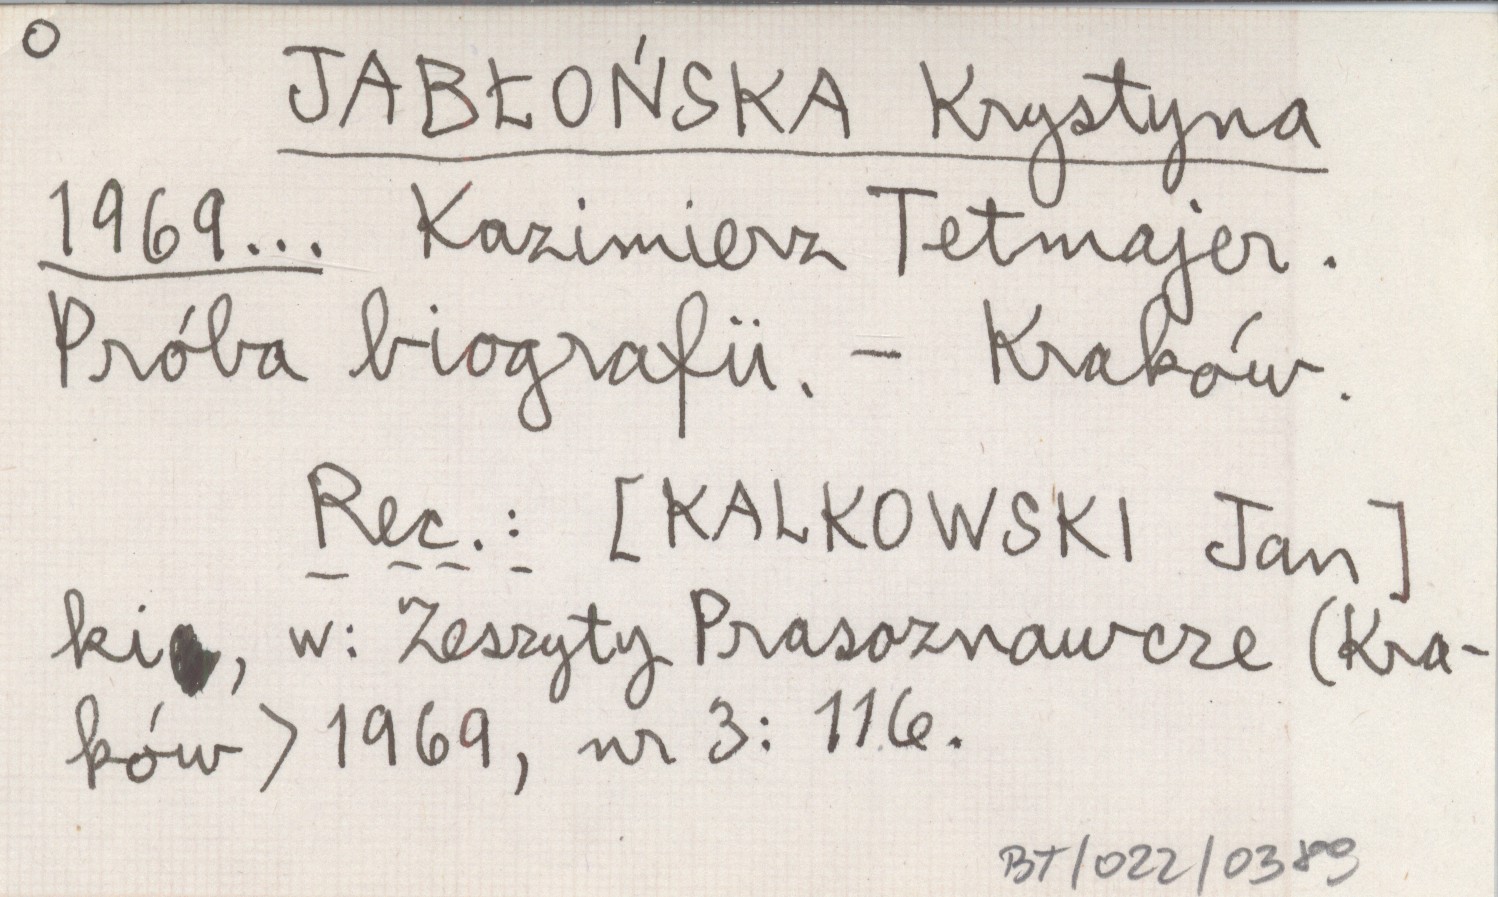 o
JABŁOŃSKA Krystyna
1969... Kazimierz Tetmajer.
Próba biografii. - Kraków.
Rec.: [KALKOWSKI Jan]
ki, w: Zeszyty Prasoznawcze (Kra-
ków) 1969, nr 3: 116.
BT/022/0389